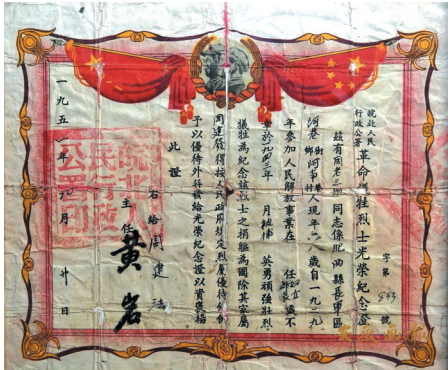 皖北人民
行政公署
革命犧牲烈士光榮紀念證
字第833號
茲有周老三鄉同志係肥西縣長軍區
河巷鄉街 人現年 歲自一九二九
年參加人民解放事業在 任 職不
幸於一九四三年 月被捕 英勇頑強壯烈
犧牲為紀念該烈士之捐軀為國除其家屬
周建發得按人民政府規定烈屬優待條例
予以優待外特發給光榮紀念證以資褒揚
此證
右給周建法
主任黃岩
一九五一年 月廿日
皖北人
民行政
公署印